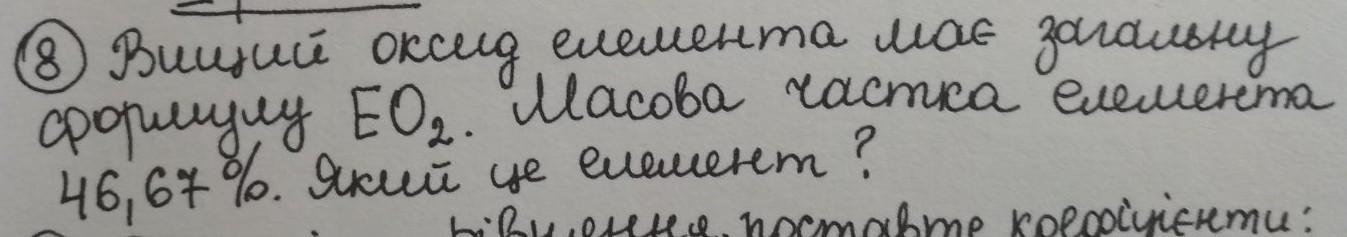 ⑧ Вищий оксид елемента має загальну
формулу EO₂. Масова частка елемента
46,67%. Який це елемент?
поставте коефіцієнти: